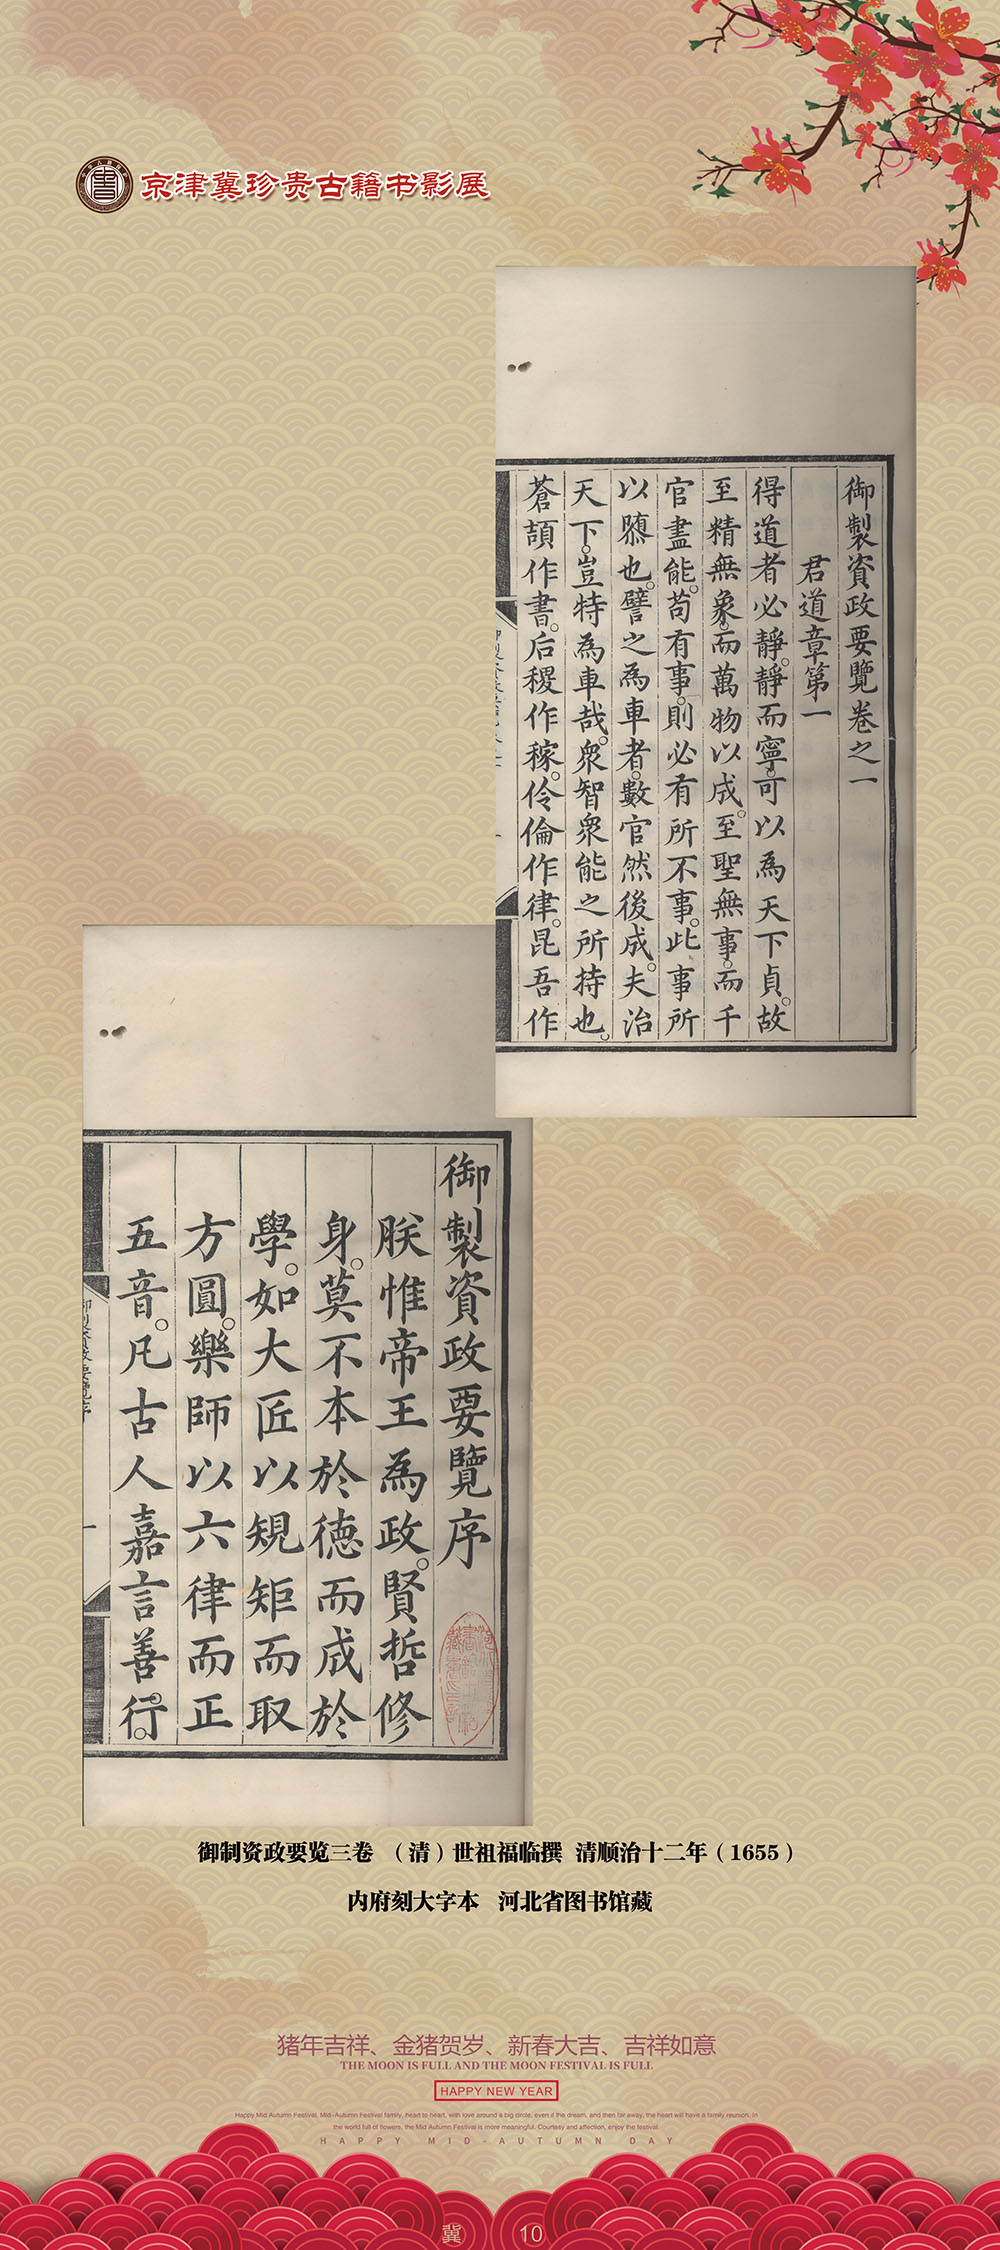 京津冀珍贵古籍书影展
御製資政要覽卷之一
君道章第一
得道者必靜。靜而寧。可以為天下貞。故
至精無象。而萬物以成。至聖無事。而千
官盡能。苟有事。則必有所不事。此事所
以隳也。譬之為車者。數官然後成。夫治
天下。豈特為車哉。衆智衆能之所持也。
蒼頡作書。后稷作稼。伶倫作律。昆吾作
御製資政要覽序
朕惟帝王為政。賢哲修
身。莫不本於德而成於
學。如大匠以規矩而取
方圓。樂師以六律而正
五音。凡古人嘉言善行。
御制资政要览三卷 （清）世祖福临撰 清顺治十二年（1655）
内府刻大字本 河北省图书馆藏
猪年吉祥、金猪贺岁、新春大吉、吉祥如意
THE MOON IS FULL AND THE MOON FESTIVAL IS FULL
HAPPY NEW YEAR
Happy Mid Autumn Festival, Mid-Autumn Festival family, heart to heart, with love around a big circle, even if the dream, and then far away, the heart will have a family reunion. In
the world full of flowers, the Mid Autumn Festival is more meaningful. Courtesy and affection, enjoy the festival.
HAPPY MID-AUTUMN DAY
冀 10